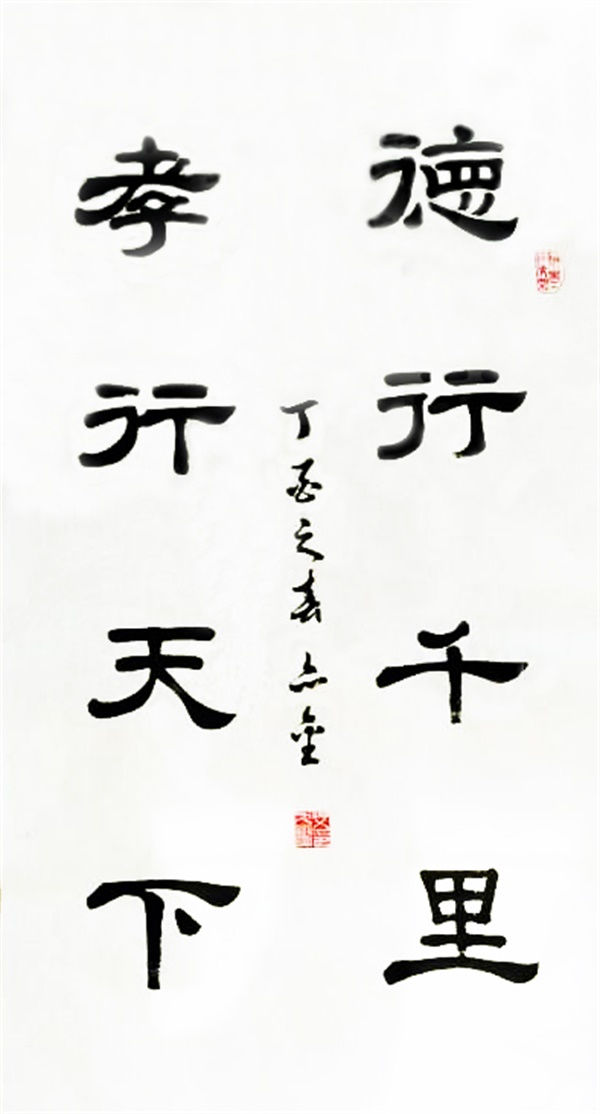 德行千里
孝行天下
丁酉之春